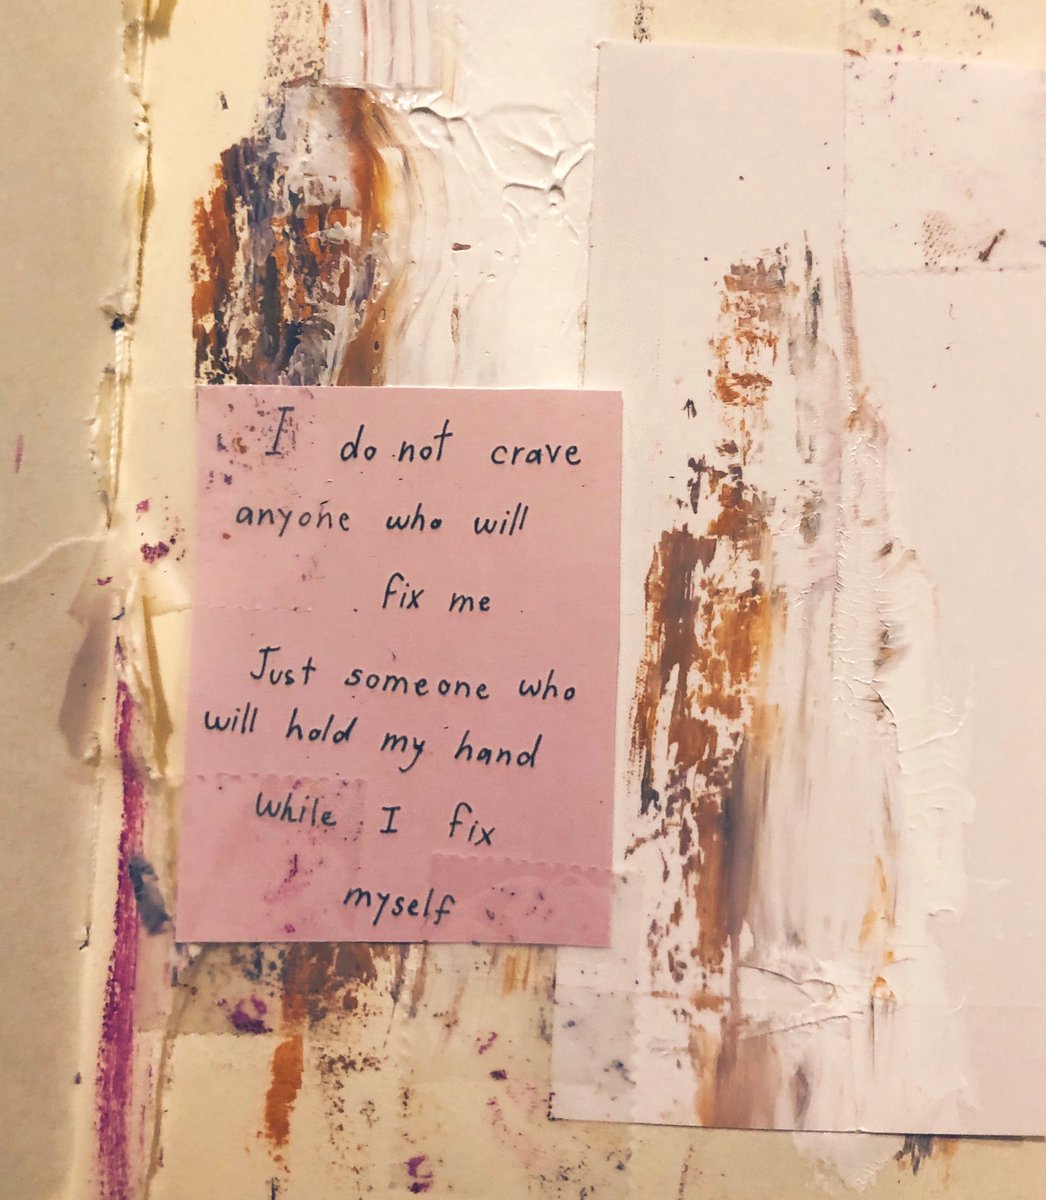 I do not crave
anyone who will
fix me
Just someone who
will hold my hand
while I fix
myself